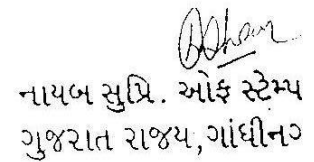 નાયબ સુપ્રિ. ઓફ સ્ટેમ્પ
ગુજરાત રાજ્ય, ગાંધીનગ